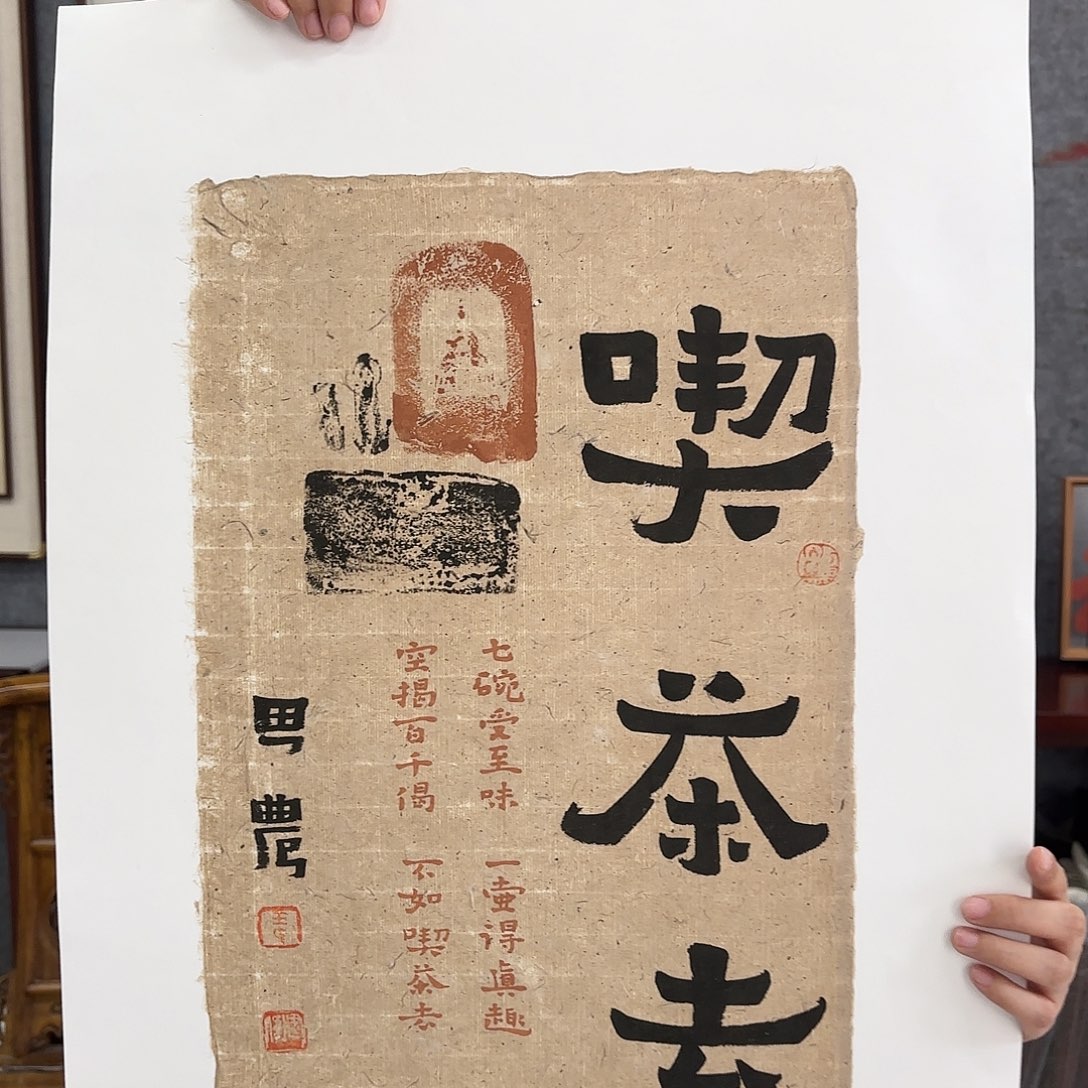 喫茶去
七碗受至味 一壷得眞趣
空揭百千偈 不如喫茶去